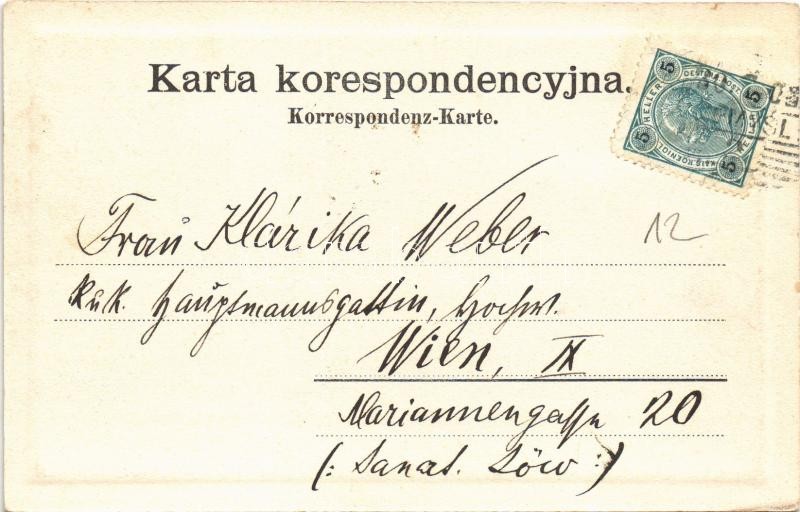 Karta korespondencyjna.
Korrespondenz-Karte.
5 OESTERR. POST. 5
HELLER HELLER
5 KAIS. KOENIGL. 5
12
Frau Klárika Weber
k.u.k. Hauptmannsgattin, Hochw.
Wien, IX
Mariannengasse 20
(: Sanat. Löw :)